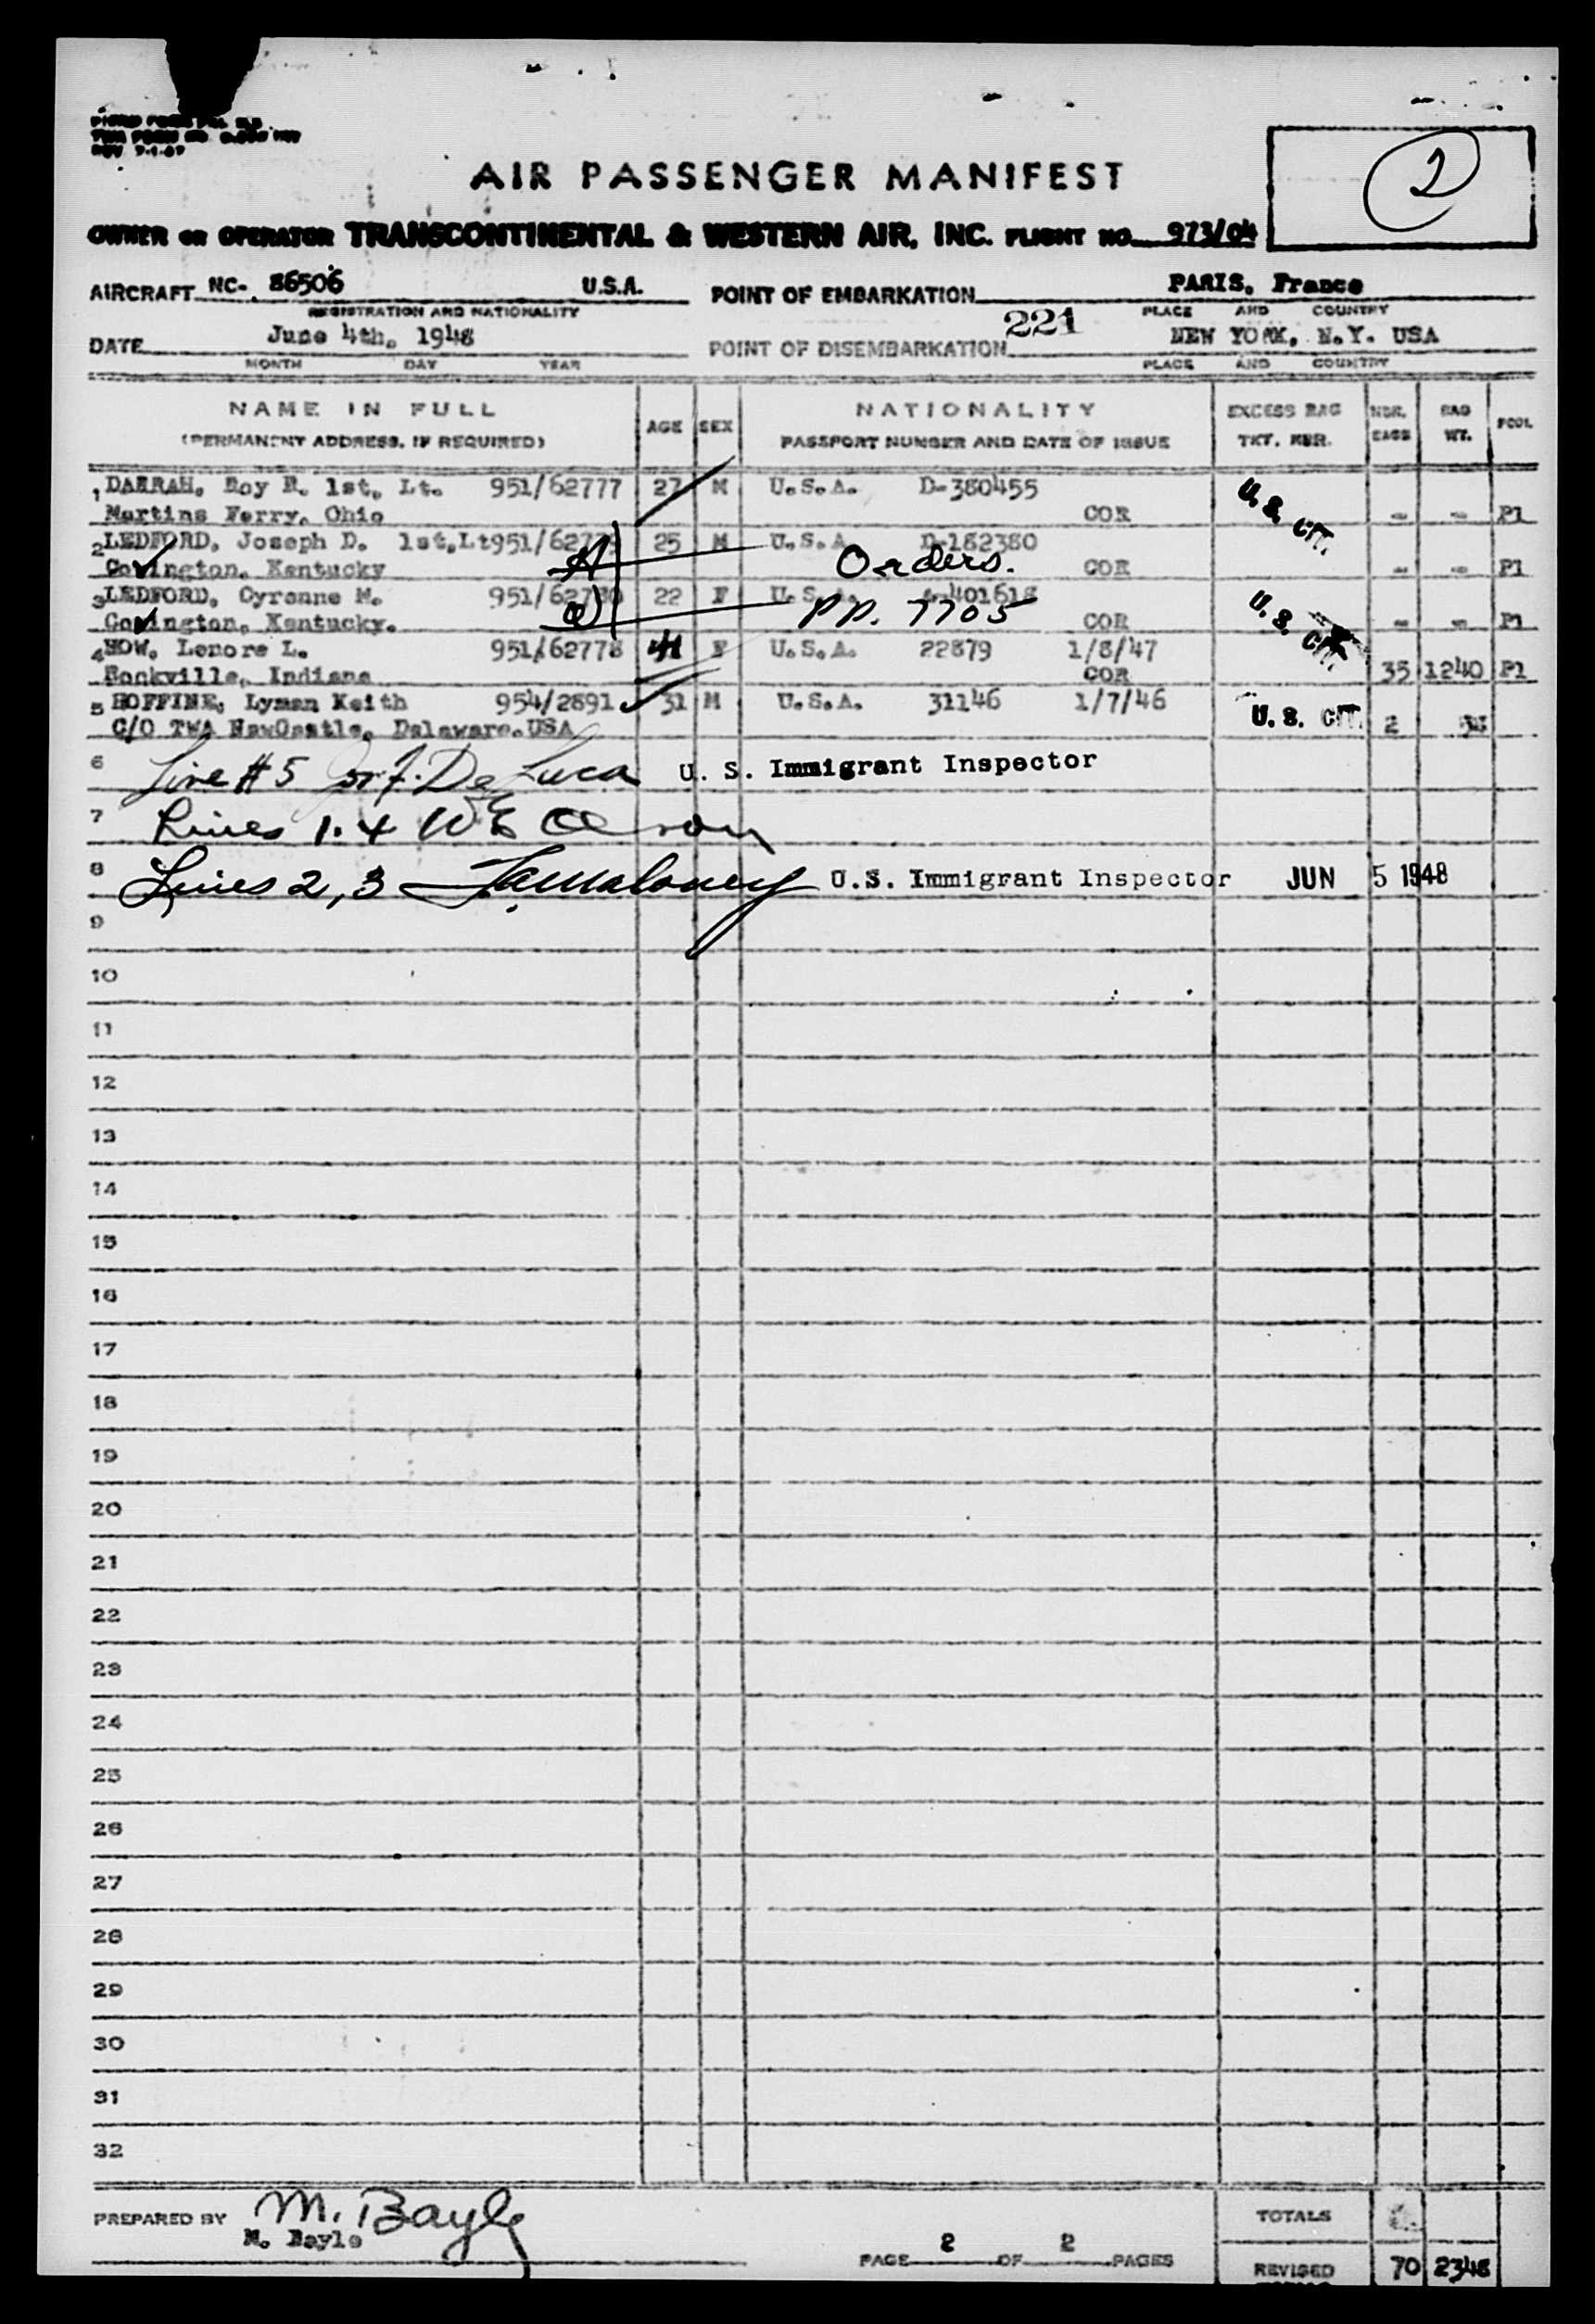 2
AIR PASSENGER MANIFEST
OWNER OR OPERATOR TRANSCONTINENTAL & WESTERN AIR, INC. FLIGHT NO. 973/04
AIRCRAFT NC- 86506 U.S.A. POINT OF EMBARKATION PARIS, France
REGISTRATION AND NATIONALITY PLACE AND COUNTRY
221
DATE June 4th, 1948 POINT OF DISEMBARKATION NEW YORK, N.Y. USA
MONTH DAY YEAR PLACE AND COUNTRY
NAME IN FULL AGE SEX NATIONALITY EXCESS BAG NBR. BAG PCOL
(PERMANENT ADDRESS, IF REQUIRED) PASSPORT NUMBER AND DATE OF ISSUE TKT. NBR. BAGS WT.
1 DARRAH, Roy R. 1st, Lt. 951/62777 27 M U.S.A. D-380455 U.S. CIT.
Martins Ferry, Ohio COR - - P1
2 LEDFORD, Joseph D. 1st, Lt 25 M U.S.A. D-182380
Covington, Kentucky Orders. COR - - P1
3 LEDFORD, Cyranne M. 951/62780 22 F U.S.A. 401618 U.S. CIT.
Covington, Kentucky. PP. 7705 COR - - P1
4 HOW, Lenore L. 951/62778 41 F U.S.A. 22879 1/8/47
Rockville, Indiana COR 35 1240 P1
5 HOFFINE, Lyman Keith 954/2891 31 M U.S.A. 31146 1/7/46
C/O TWA NewCastle, Delaware.USA U.S. CIT. 2
6 Line # 5 De Luca U. S. Immigrant Inspector
7 Lines 1.4 WE Olson
8 Lines 2,3 Maloney U.S. Immigrant Inspector JUN 5 1948
9
10
11
12
13
14
15
16
17
18
19
20
21
22
23
24
25
26
27
28
29
30
31
32
PREPARED BY M. Bayle TOTALS
M. Bayle
PAGE 2 OF 2 PAGES REVISED 70 2348